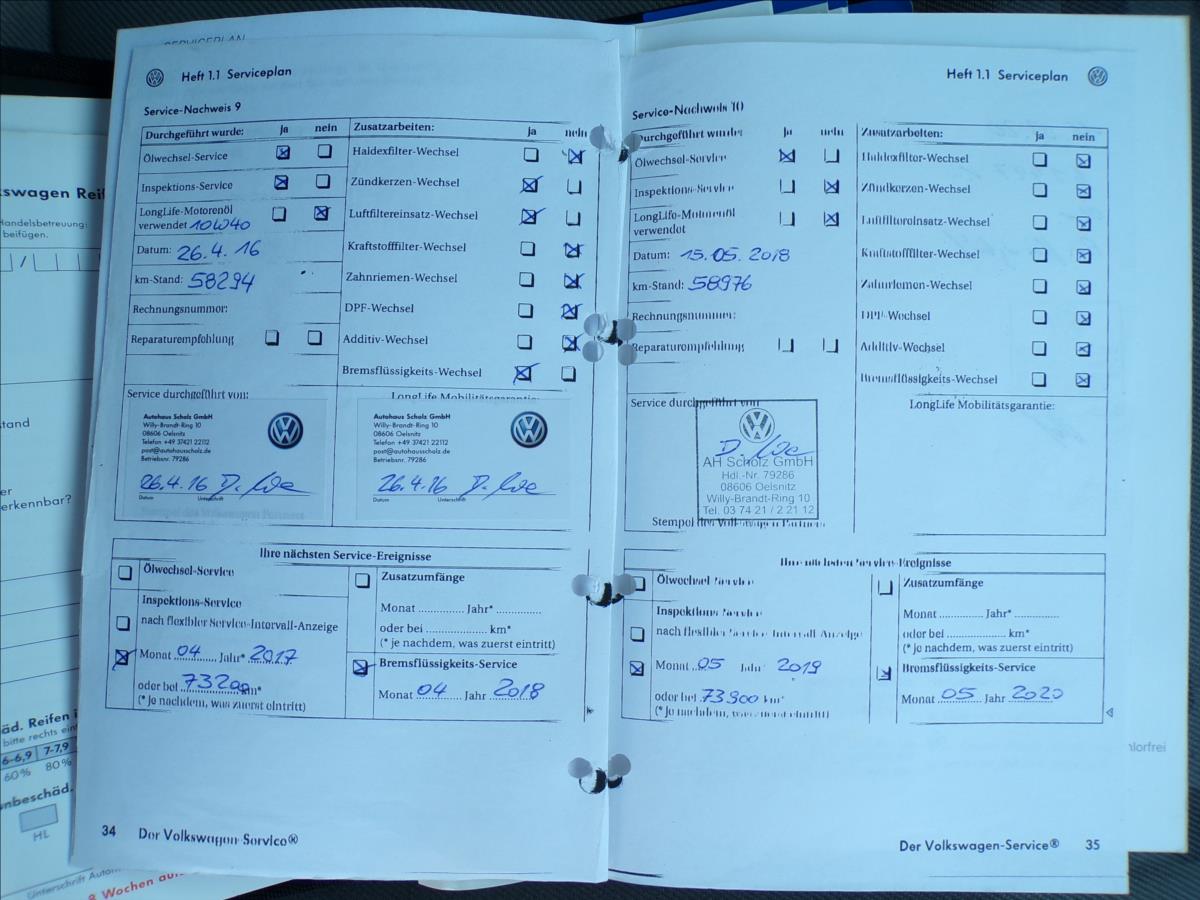 SERVICEPLAN
Heft 1.1 Serviceplan
Service-Nachweis 9
Durchgeführt wurde: ja nein
Ölwechsel-Service
Inspektions-Service
LongLife-Motorenöl
verwendet 10W40
Datum: 26.4.16
km-Stand: 58294
Rechnungsnummer:
Reparaturempfehlung
Zusatzarbeiten: ja nein
Haldexfilter-Wechsel
Zündkerzen-Wechsel
Luftfiltereinsatz-Wechsel
Kraftstofffilter-Wechsel
Zahnriemen-Wechsel
DPF-Wechsel
Additiv-Wechsel
Bremsflüssigkeits-Wechsel
Service durchgeführt von:
Autohaus Scholz GmbH
Willy-Brandt-Ring 10
08606 Oelsnitz
Telefon +49 37421 22112
post@autohausscholz.de
Betriebsnr. 79286
26.4.16
Datum Unterschrift
LongLife Mobilitätsgarantie:
Autohaus Scholz GmbH
Willy-Brandt-Ring 10
08606 Oelsnitz
Telefon +49 37421 22112
post@autohausscholz.de
Betriebsnr. 79286
26.4.16
Datum Unterschrift
Ihre nächsten Service-Ereignisse
Ölwechsel-Service
Inspektions-Service
nach flexibler Service-Intervall-Anzeige
Monat 04 Jahr* 2017
oder bei 73200 km*
(* je nachdem, was zuerst eintritt)
Zusatzumfänge
Monat .............. Jahr* .............
oder bei .................... km*
(* je nachdem, was zuerst eintritt)
Bremsflüssigkeits-Service
Monat 04 Jahr 2018
34 Der Volkswagen-Service®
Heft 1.1 Serviceplan
Service-Nachweis 10
Durchgeführt wurde ja nein
Ölwechsel-Service
Inspektions-Service
LongLife-Motorenöl
verwendet
Datum: 15.05.2018
km-Stand: 58976
Rechnungsnummer:
Reparaturempfehlung
Zusatzarbeiten: ja nein
Haldexfilter-Wechsel
Zündkerzen-Wechsel
Luftfiltereinsatz-Wechsel
Kraftstofffilter-Wechsel
Zahnriemen-Wechsel
DPF-Wechsel
Additiv-Wechsel
Bremsflüssigkeits-Wechsel
Service durchgeführt von
AH Scholz GmbH
Hdl.-Nr. 79286
08606 Oelsnitz
Willy-Brandt-Ring 10
Tel. 03 74 21 / 2 21 12
Stempel des Volkswagen Partners
LongLife Mobilitätsgarantie:
Ihre nächsten Service-Ereignisse
Ölwechsel Service
Inspektions Service
nach flexibler Service Intervall Anzeige
Monat 05 Jahr 2019
oder bei 73900 km*
(* je nachdem, was zuerst eintritt)
Zusatzumfänge
Monat .............. Jahr* .............
oder bei .................... km*
(* je nachdem, was zuerst eintritt)
Bremsflüssigkeits-Service
Monat 05 Jahr 2020
Der Volkswagen-Service® 35
kswagen Reif
Handelsbetreuung:
beifügen.
/
tand
er
erkennbar?
äd. Reifen i
bitte rechts ein
6-6,9 7-7,9
60% 80%
nbeschäd.
HL
Unterschrift Autom
8 Wochen auf
hlorfrei